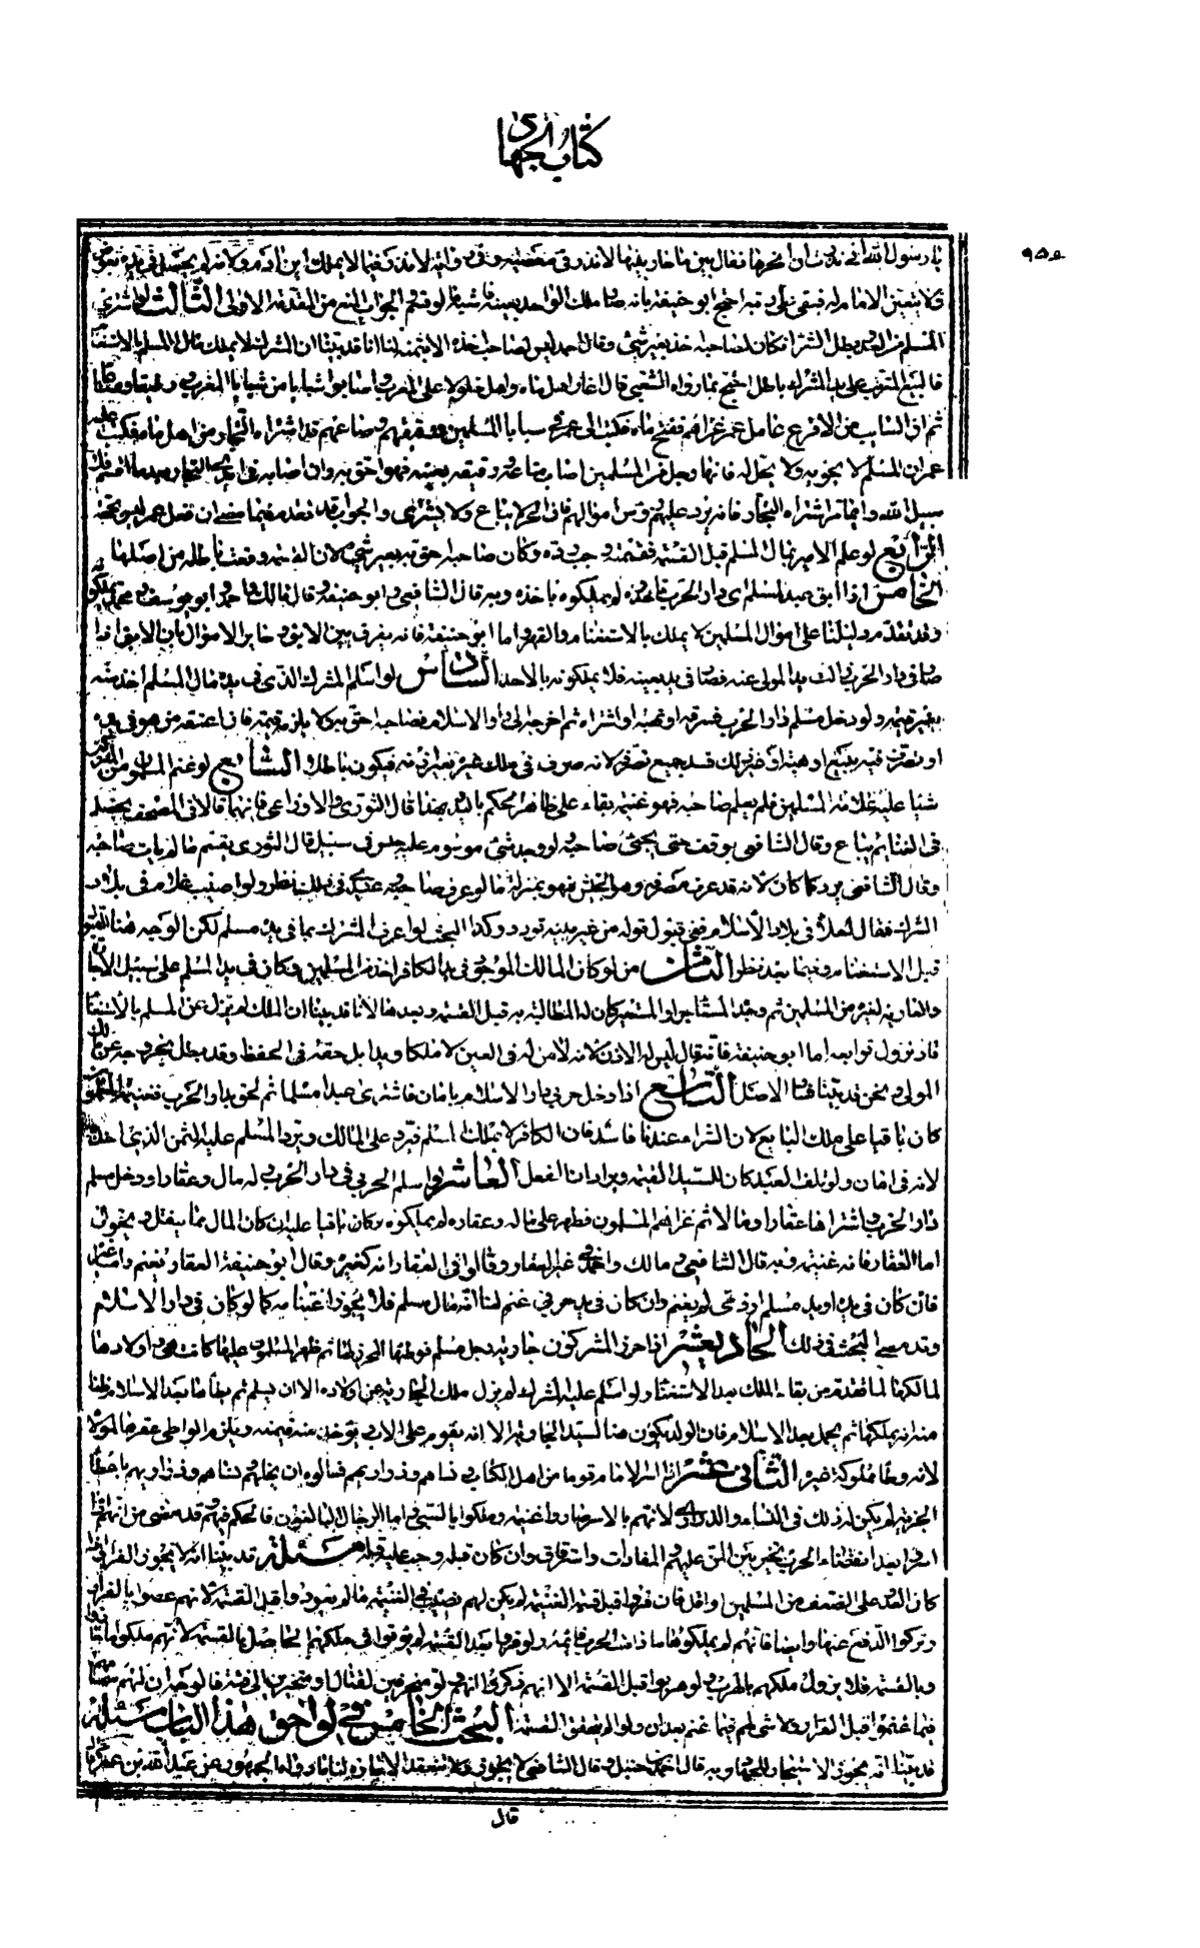 كتاب الجهاد
٩٥٥
يا رسول الله اني نذرت ان انحرها فقال بئس ما جازيتها لا نذر في معصية وفي رواية لا نذر فيما لا يملك ابن ادم ولانه لم يحصل في يده بعوض
ولا يتعين الامام له فبقي على احتج ابو حنيفة بانه ملك الواحد بعينه الجواب المنع من المقدمة الاولى الثالث لو اشترى
المسلم من العدو بطل الشراء وكان لصاحبه اخذه بغير شيء وقال احمد ليس لصاحبه اخذه الا بثمنه لنا انا قد بينا ان المشرك لا يملك مال المسلم بالاستغنام
فالبيع المترتب على يد المشرك باطل احتج بما رواه الشعبي قال اغار اهل ماه واهل جلولا على العرب واصابوا سبايا من سبايا العرب ورقيقا ومتاعا
ثم ان السايب بن الاقرع عامل عمر غزاهم ففتح ماه فكتب الى عمر في سبايا المسلمين ورقيقهم ومتاعهم قد اشتراه التجار من اهل ماه فكتب عليه
عمر ان المسلم لا يخونه ولا يخذله فايما رجل من المسلمين اصاب متاعه ورقيقه بعينه فهو احق به وان اصابه في ايدي التجار بعد ما اقتسم فلا
سبيل اليه وايما حر اشتراه التجار فانه يرد عليهم رؤس اموالهم فان الحر لا يباع ولا يشترى والجواب قد تقدم فيما مضى ان فعل عمر ليس بحجة
الرابع لو علم الامير بمال المسلم قبل القسمة فقسمه وجب رده وكان صاحبه احق به بغير شيء لان القسمة وقعت باطلة من اصلها
الخامس اذا ابق عبد المسلم الى دار الحرب فاخذوه لم يملكوه باخذه وبه قال الشافعي وابو حنيفة وقال مالك واحمد وابو يوسف ومحمد يملكونه
وقد تقدم دليلنا على اموال المسلمين لا يملك بالاستغنام والقهر واما ابو حنيفة فانه يفرق بين الابق وساير الاموال بان الابق اذا
صار في دار الحرب زالت يد المولى عنه فصار في يد نفسه فلا يملكونه بالاخذ السادس لو اسلم المشرك الذي في يده مال المسلم اخذ منه
بغير قيمة ولو دخل مسلم دار الحرب فسرقه او نهبه او اشتراه ثم اخرجه الى دار الاسلام فصاحبه احق به ولا يلزمه قيمة فان اعتقه من هو في يده
او تصرف فيه ببيع او هبة او غير ذلك فسد جميع تصرفه لانه تصرف في ملك غيره بغير اذنه فيكون باطلا السابع لو غنم المسلمون من المشركين
شيئا عليه علامة المسلمين فلم يعلم صاحبه فهو غنيمة بقاء على ظاهر الحكم باليد بهذا قال الثوري والاوزاعي فانهما قالا في المصحف يحصل
في الغنايم يباع وقال الشافعي يوقف حتى يجيء صاحبه لو وجد شيء موسوم عليه حبس في سبيل الله قال الثوري يقسم ما لم يات صاحبه
وقال الشافعي يرد كما كان لانه قد عرف مصرفه وهو الحبس فهو بمنزلة ما لو عرف صاحبه وعندي في ذلك نظر ولو اصيب غلام في بلاد
الشرك فقال انا لفلان في بلاد الاسلام ففي قبول قوله من غير بينة تردد وكذا البحث لو اعترف المشرك بما في يده لمسلم لكن الوجه هنا القبول
قبل الاستغنام وفيما بعده نظر الثامن من لو كان المالك الموجود في يد الكافر اخذه من المسلمين وكان في يد المسلم على سبيل الاجارة
والعارية لغيره من المسلمين ثم وجده المستاجر او المستعير كان له المطالبة به قبل القسمة وبعدها لانا قد بينا ان الملك لم يزل عن المسلم بالاستغنام
فلا تزول توابعه اما ابو حنيفة فانه قال ليس له الاخذ لانه الامن له في العين لا ملكا ويدا بل حقه في الحفظ وقد بطل بخروجه عن ملك
المولى ونحن قد بينا فساد الاصل التاسع اذا دخل حربي دار الاسلام بامان فاشترى عبدا مسلما ثم لحق بدار الحرب فغنمه المسلمون
كان باقيا على ملك البايع لان الشراء عندنا فاسد فان الكافر لا يملك المسلم فيرد على المالك ويرد المسلم عليه الثمن الذي اخذه
لانه في امان ولو تلف العبد كان للسيد القيمة ويرادان الفضل العاشر لو اسلم الحربي في دار الحرب وله مال وعقار او دخل مسلم
دار الحرب واشترى بها عقارا ومالا ثم غزاهم المسلمون فظهر على ماله وعقاره لم يملكوه وكان باقيا عليه ان كان المال مما ينقل ويحول
اما العقار فانه غنيمة وبه قال الشافعي ومالك واحمد في غير العقار وقالوا في العقار انه كغيره وقال ابو حنيفة العقار يغنم واما غيره
فان كان في يده او يد مسلم او ذمي لم يغنم وان كان في يد حربي غنم لنا انه مال مسلم فلا يجوز اغتنامه كما لو كان في دار الاسلام
وقد مضى البحث في ذلك الحادي عشر اذا احرز المشركون جارية رجل مسلم فوطئها المحرز لها ثم ظهر المسلمون عليها كانت هي واولادها
لمالكها لما تقدم من بقاء الملك بعد الاستغنام ولو اسلم عليها المشرك لم يزل ملك الجارية عن اولاده الا ان يسلم ثم يطأها بعد الاسلام ظنا
منه انه يملكها ثم تحمل بعد الاسلام فان الولد يكون هنا لسيد الجارية الا انه يقوم على الاب ويؤخذ منه قيمته ويلزم الواطي عقرها لمولاها
لانه وطأ مملوكة غيره الثاني عشر اذا اسر الامام قوما من اهل الكتاب نساءهم وذراريهم فسالوه ان يخليهم ونساءهم وذراريهم باعطاء
الجزية لم يكن له ذلك في النساء والذراري لانهم بالاسر صاروا غنيمة وملكوا بالسبي واما الرجال البالغون فالحكم فيهم قد مضى من انهم
اسروا بعد انقضاء الحرب تخير بين المن عليهم والمفادات واسترقاق وان كان قبله وجب عليه قتله مسئلة قد بينا انه لا يجوز الفرار اذا
كان العدو على الضعف من المسلمين او اقل فان فروا قبل قسمة الغنيمة لم يكن لهم نصيب في الغنيمة ما لم يعودوا قبل القسمة لانهم عصوا بالفرار
وتركوا الدفع عنها وايضا فانهم لم يملكوها ما دامت الحرب قايمة ولو فروا بعد القسمة لم يؤثر في ملكهم الحاصل بالقسمة لانهم ملكوا ما حازوا
وبالقسمة فلا يزول ملكهم بالهرب ولو هربوا قبل القسمة الا انهم ذكروا انهم ولوا متحرفين لقتال او متحيزين الى فئة فالوجه ان لهم سهمهم
فيما غنموا قبل الفرار ولا شيء لهم فيما غنم بعد ان ولوا ولم يتحقق القسمة البحث الخامس في لواحق هذا الباب مسئلة
قد بينا انه يجوز الاستيجار للجهاد وبه قال احمد بن حنبل وقال الشافعي لا يجوز ولا تنعقد الاجارة لنا ما رواه الجمهور عن عبد الله بن عمر
قال